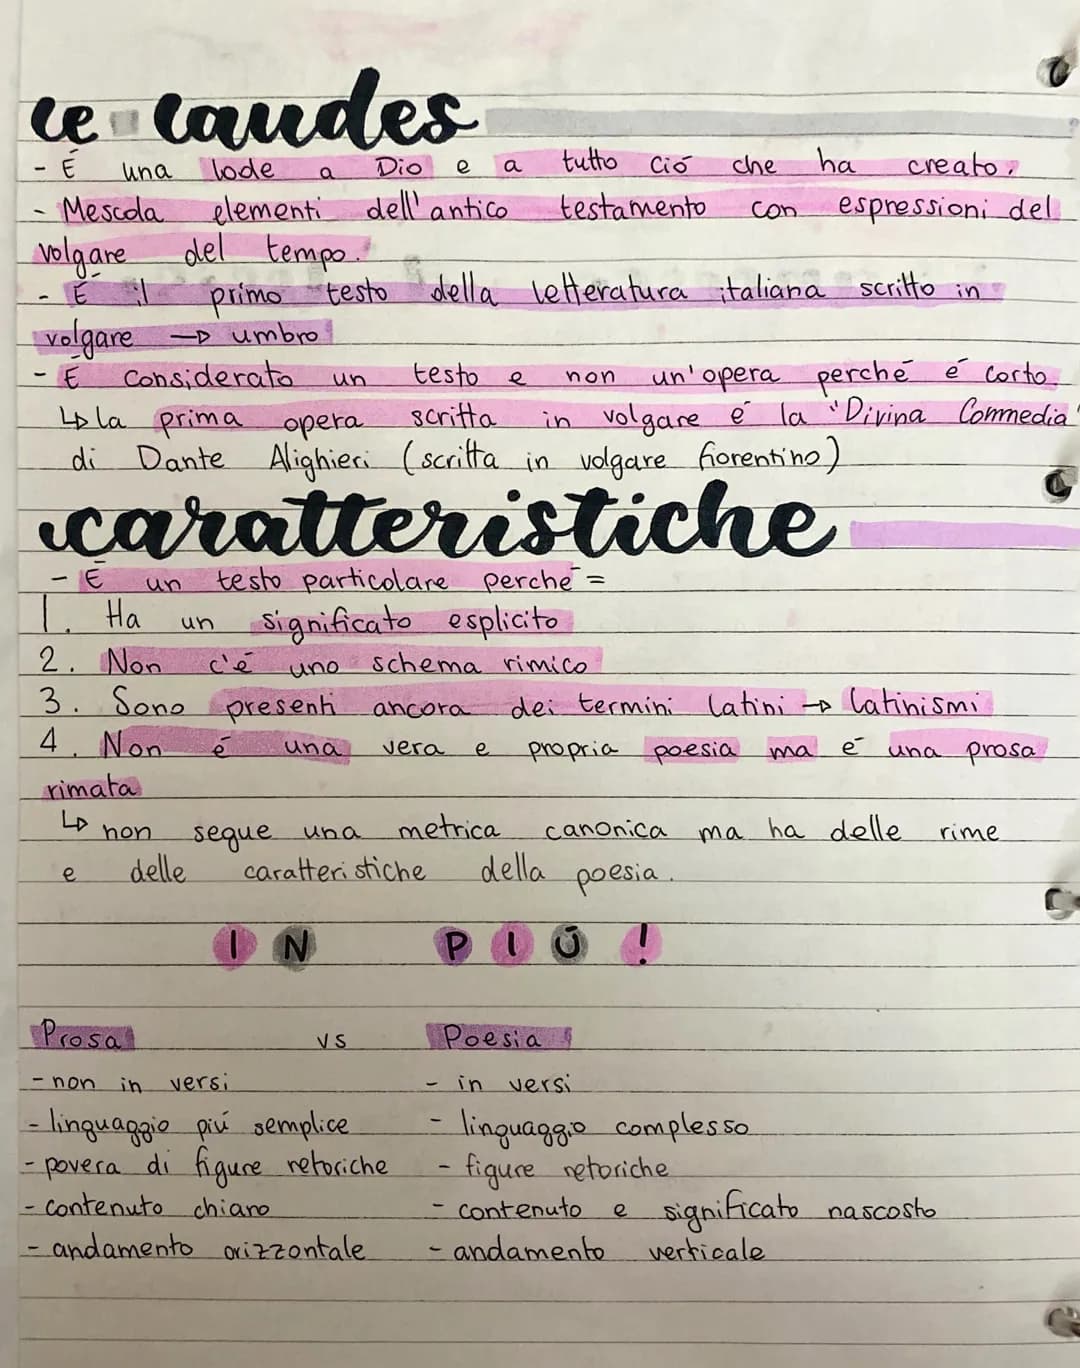 le laudes
- É una lode a Dio e a tutto ció che ha creato.
- Mescola elementi dell'antico testamento con espressioni del
volgare del tempo.
- É il primo testo della letteratura italiana scritto in
volgare → umbro
- É considerato un testo e non un'opera perché é corto.
↳ la prima opera scritta in volgare é la "Divina Commedia"
di Dante Alighieri (scritta in volgare fiorentino)
caratteristiche
- É un testo particolare perché =
1. Ha un significato esplicito
2. Non c'é uno schema rimico
3. Sono presenti ancora dei termini latini → latinismi
4. Non é una vera e propria poesia ma é una prosa
rimata
↳ non segue una metrica canonica ma ha delle rime
e delle caratteristiche della poesia.
IN PIÚ!
Prosa vs Poesia
- non in versi - in versi
- linguaggio piú semplice - linguaggio complesso
- povera di figure retoriche - figure retoriche
- contenuto chiaro - contenuto e significato nascosto
- andamento orizzontale - andamento verticale